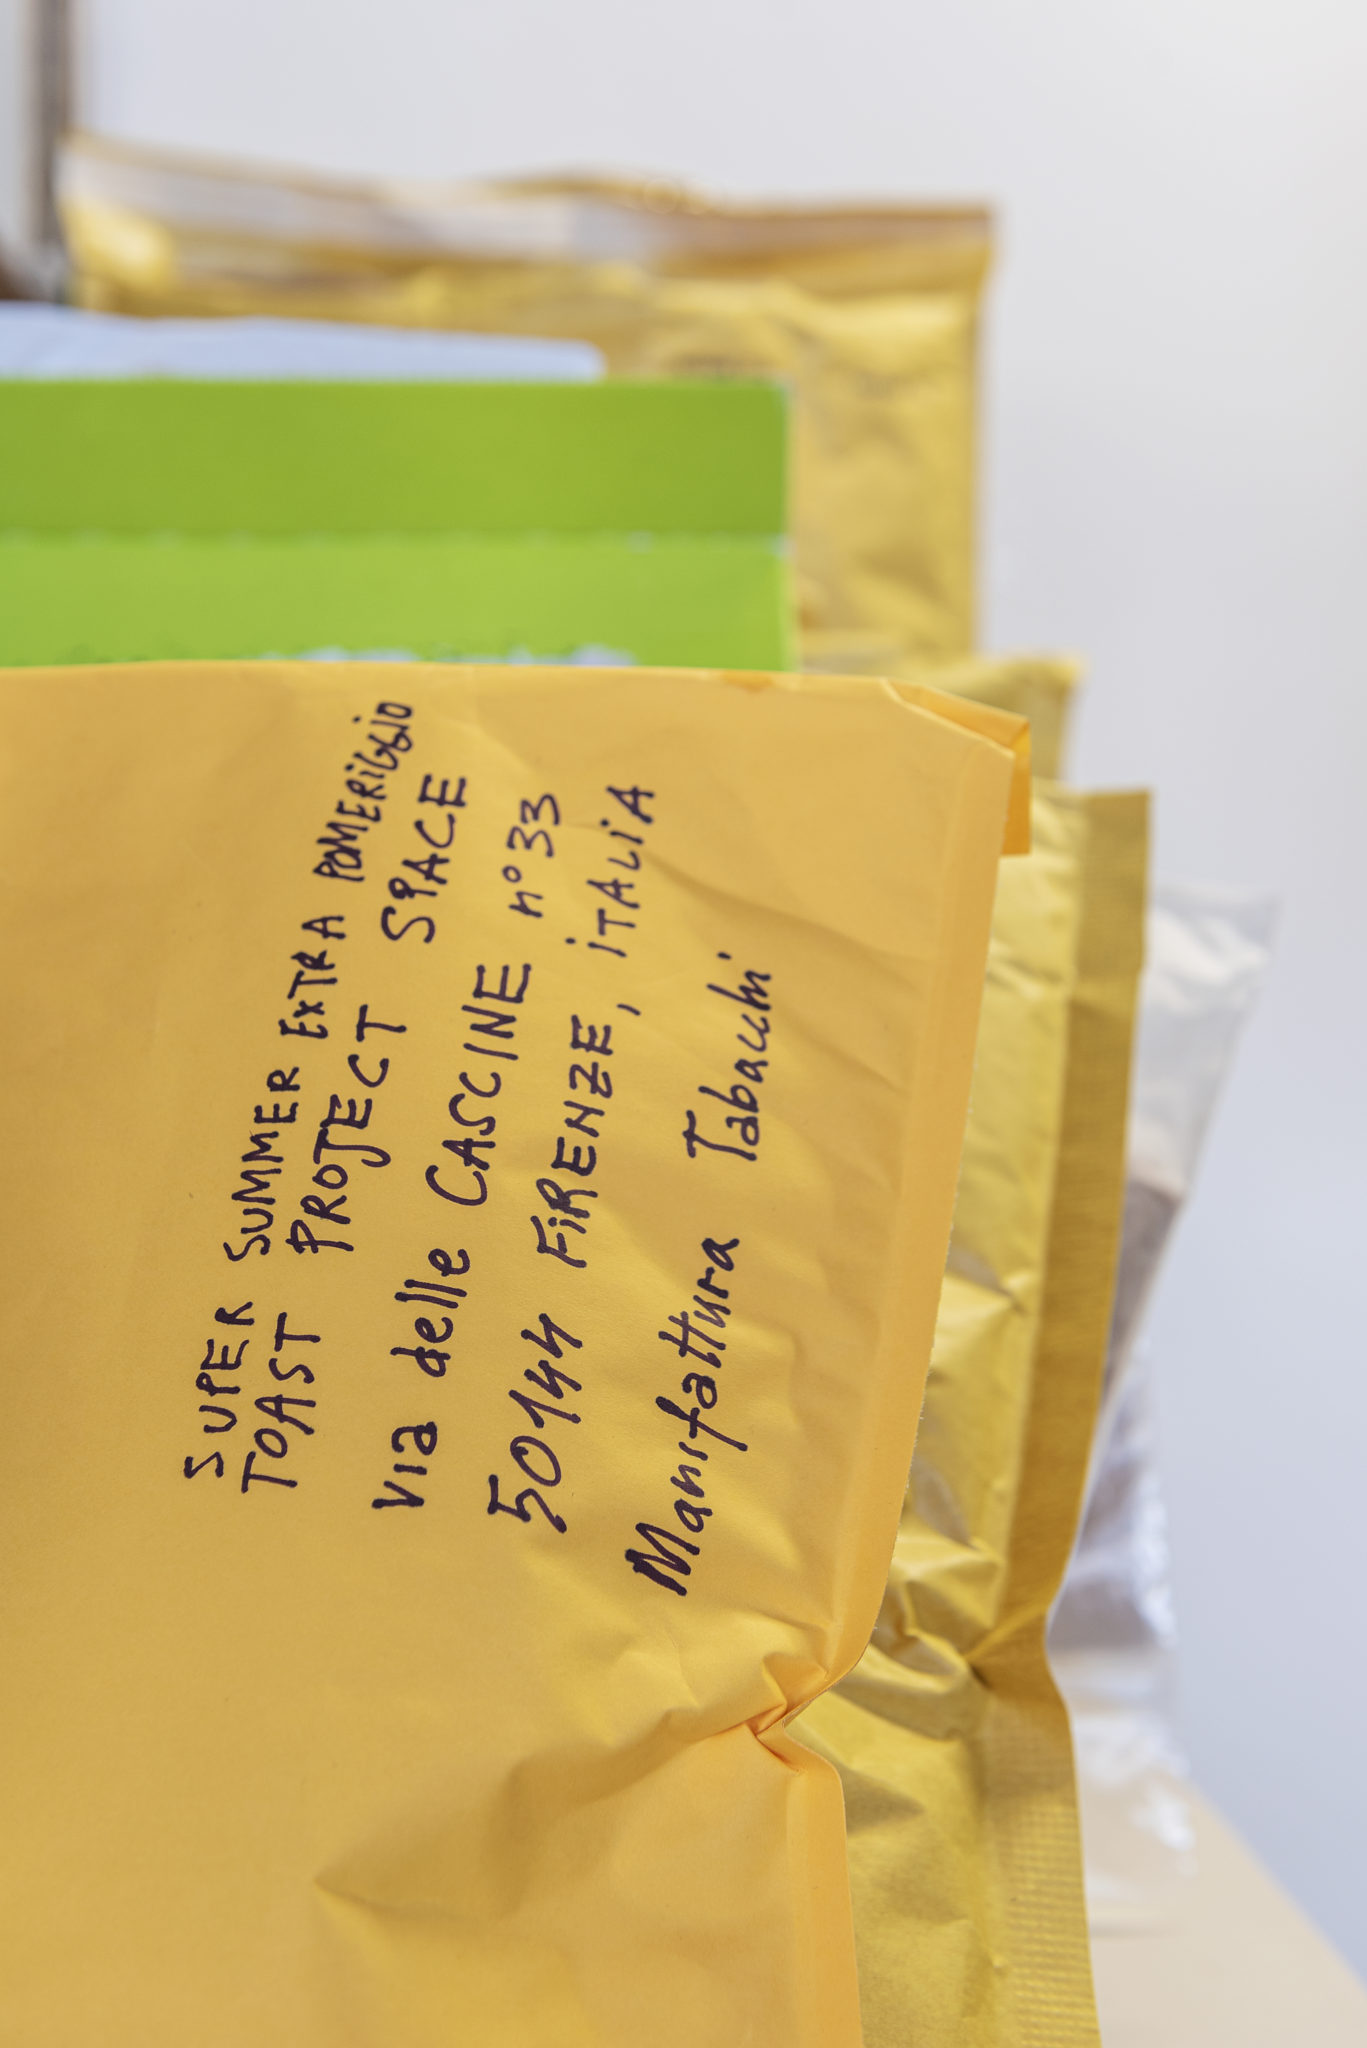 SUPER SUMMER EXTRA POMERiGGiO
TOAST PROJECT SPACE
Via delle CASCINE n° 33
50144 FiRENZE, iTALiA
Manifattura Tabacchi